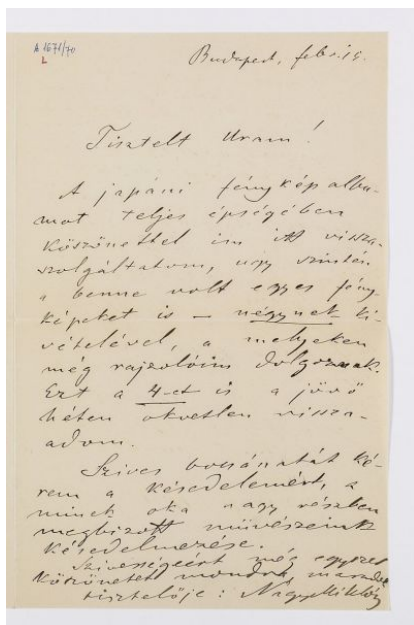 A 1671/70
L
Budapest, febr. 19.
Tisztelt Uram!
A japáni fénykép albu-
mot teljes épségében
köszönettel im itt vissza-
szolgáltatom, ugy szintén
a benne volt egyes fény-
képeket is – négynek ki-
vételével, a melyeken
még rajzolóim dolgoznak.
Ezt a 4-et is a jövő
héten okvetlen vissza-
adom.
Szives bocsánatát ké-
rem a késedelemért, a
minek oka nagy részben
megbizott művészeink
késedelmezése.
Szivességeért még egyszer
köszönetet mondva, maradok
tisztelője: Nagy Miklós